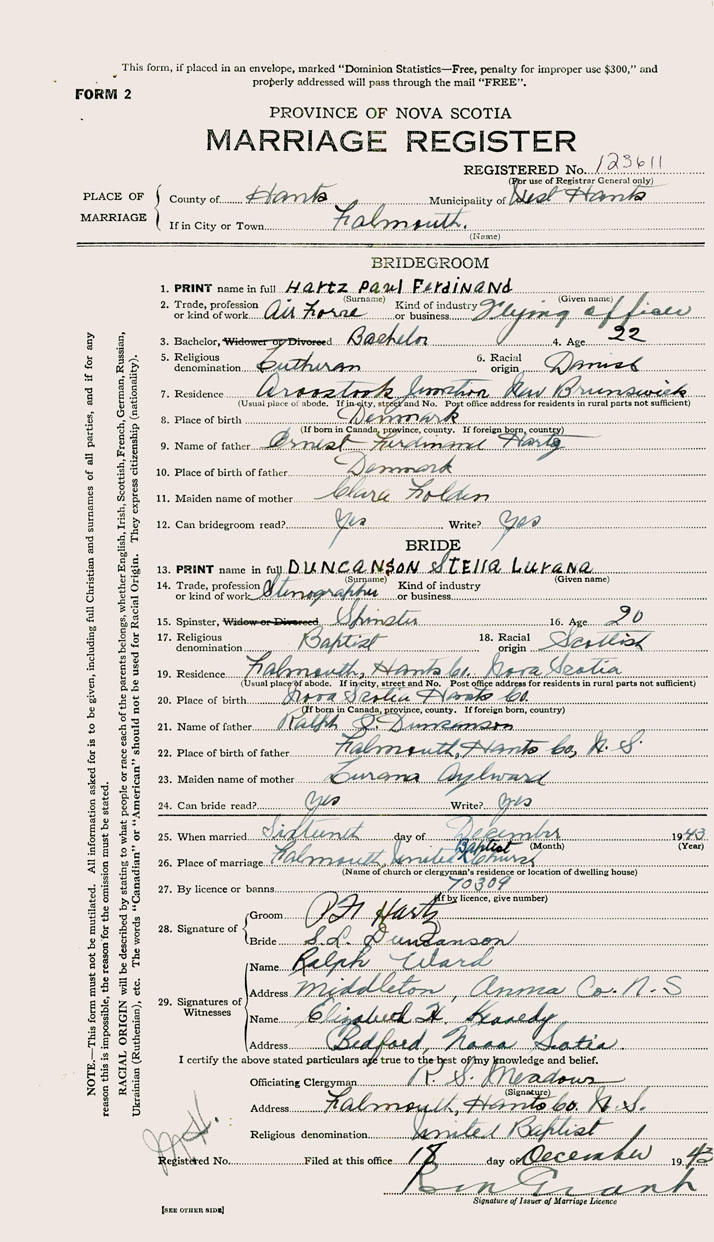 This form, if placed in an envelope, marked "Dominion Statistics—Free, penalty for improper use $300," and
properly addressed will pass through the mail "FREE".
FORM 2
PROVINCE OF NOVA SCOTIA
MARRIAGE REGISTER
REGISTERED No. 123611
(For use of Registrar General only)
PLACE OF MARRIAGE
County of Hants Municipality of West Hants
If in City or Town Falmouth.
(Name)
BRIDEGROOM
1. PRINT name in full Hartz Paul Ferdinand
(Surname) (Given name)
2. Trade, profession or kind of work Air Force Kind of industry or business Flying officer
3. Bachelor, Widower or Divorced Bachelor 4. Age 22
5. Religious denomination Lutheran 6. Racial origin Danish
7. Residence Aroostook Junction New Brunswick
(Usual place of abode. If in city, street and No. Post office address for residents in rural parts not sufficient)
8. Place of birth Denmark
(If born in Canada, province, county. If foreign born, country)
9. Name of father Ernest Ferdinand Hartz
10. Place of birth of father Denmark
11. Maiden name of mother Clara Holden
12. Can bridegroom read? Yes Write? Yes
BRIDE
13. PRINT name in full DUNCANSON Stella Lurana
(Surname) (Given name)
14. Trade, profession or kind of work Stenographer Kind of industry or business
15. Spinster, Widow or Divorced Spinster 16. Age 20
17. Religious denomination Baptist 18. Racial origin Scottish
19. Residence Falmouth, Hants Co. Nova Scotia
(Usual place of abode. If in city, street and No. Post office address for residents in rural parts not sufficient)
20. Place of birth Nova Scotia Hants Co.
(If born in Canada, province, county. If foreign born, country)
21. Name of father Ralph Duncanson
22. Place of birth of father Falmouth, Hants Co, N. S.
23. Maiden name of mother Lurana Aylward
24. Can bride read? Yes Write? Yes
25. When married Sixteenth day of December 1943
(Month) (Year)
26. Place of marriage Falmouth, United Baptist Church
(Name of church or clergyman's residence or location of dwelling house)
27. By licence or banns 70309
(If by licence, give number)
28. Signature of
Groom P F Hartz
Bride S. L. Duncanson
29. Signatures of Witnesses
Name Ralph Ward
Address Middleton, Anna Co. N. S
Name Elizabeth H. Kennedy
Address Bedford, Nova Scotia.
I certify the above stated particulars are true to the best of my knowledge and belief.
Officiating Clergyman R. S. Meadows
(Signature)
Address Falmouth, Hants Co. N. S.
Religious denomination United Baptist
Registered No. Filed at this office 18 day of December 1943
Signature of Issuer of Marriage Licence
[SEE OTHER SIDE]
NOTE.—This form must not be mutilated. All information asked for is to be given, including full Christian and surnames of all parties, and if for any
reason this is impossible, the reason for the omission must be stated.
RACIAL ORIGIN will be described by stating to what people or race each of the parents belongs, whether English, Irish, Scottish, French, German, Russian,
Ukrainian (Ruthenian), etc. The words "Canadian" or "American" should not be used for Racial Origin. They express citizenship (nationality).